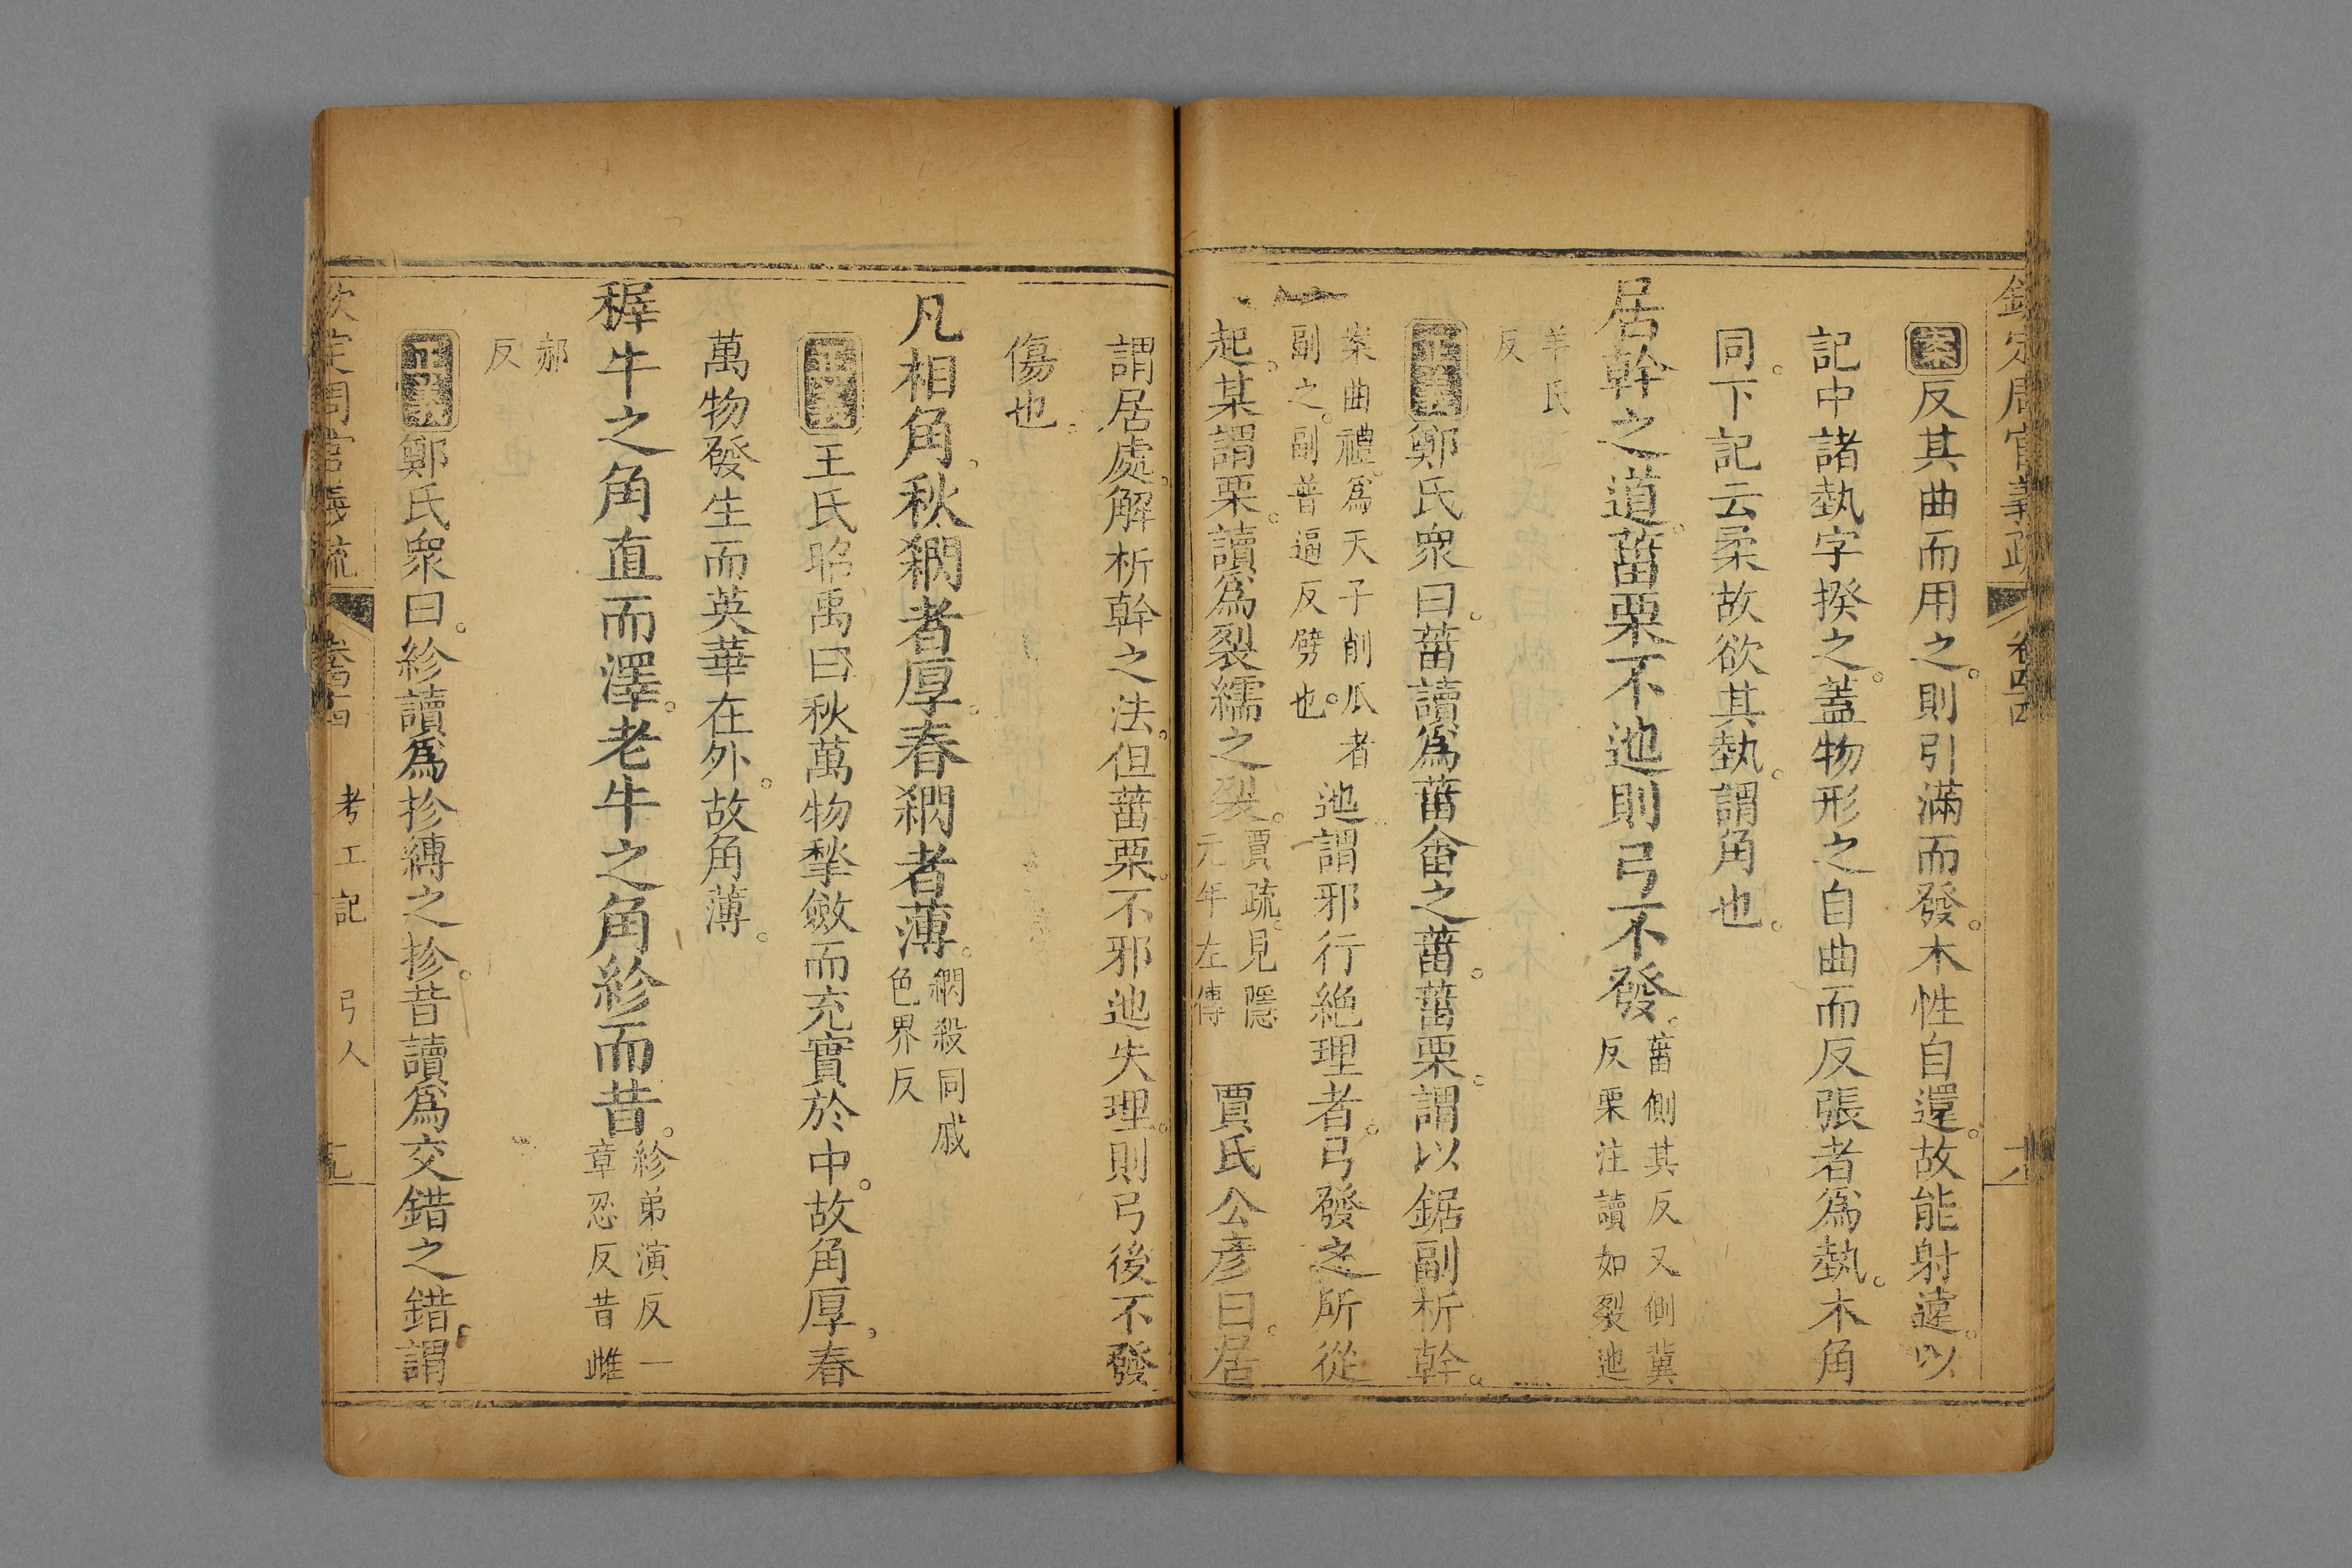 案反其曲而用之。則引滿而發。木性自還。故能射遠。以
記中諸埶字揆之。蓋物形之自曲而反張者爲埶。木角
同。下記云柔故欲其埶。謂角也。
居幹之道。菑栗不迆則弓不發。菑側其反又側冀
反栗注讀如裂迆
羊氏
反
正義鄭氏衆曰。菑讀爲菑畬之菑。菑栗。謂以鋸副析幹。
案曲禮。爲天子削瓜者
副之。副普逼反劈也。
迆。謂邪行絶理者。弓發之所從
起。某謂栗。讀爲裂繻之裂。賈疏。見隱
元年左傳
賈氏公彥曰。居
謂居處。解析幹之法。但菑栗。不邪迆失理。則弓後不發
傷也。
凡相角。秋䋛者厚。春䋛者薄。䋛殺同戚
色界反
正義王氏昭禹曰秋萬物揫斂而充實於中。故角厚。春
萬物發生而英華在外。故角薄。
稺牛之角直而澤。老牛之角紾而昔。紾弟演反一
章忍反昔雌
郝
反
正義鄭氏衆曰。紾讀爲抮縛之抮。昔讀爲交錯之錯。謂
欽定周官義疏
卷四十四
考工記
弓人